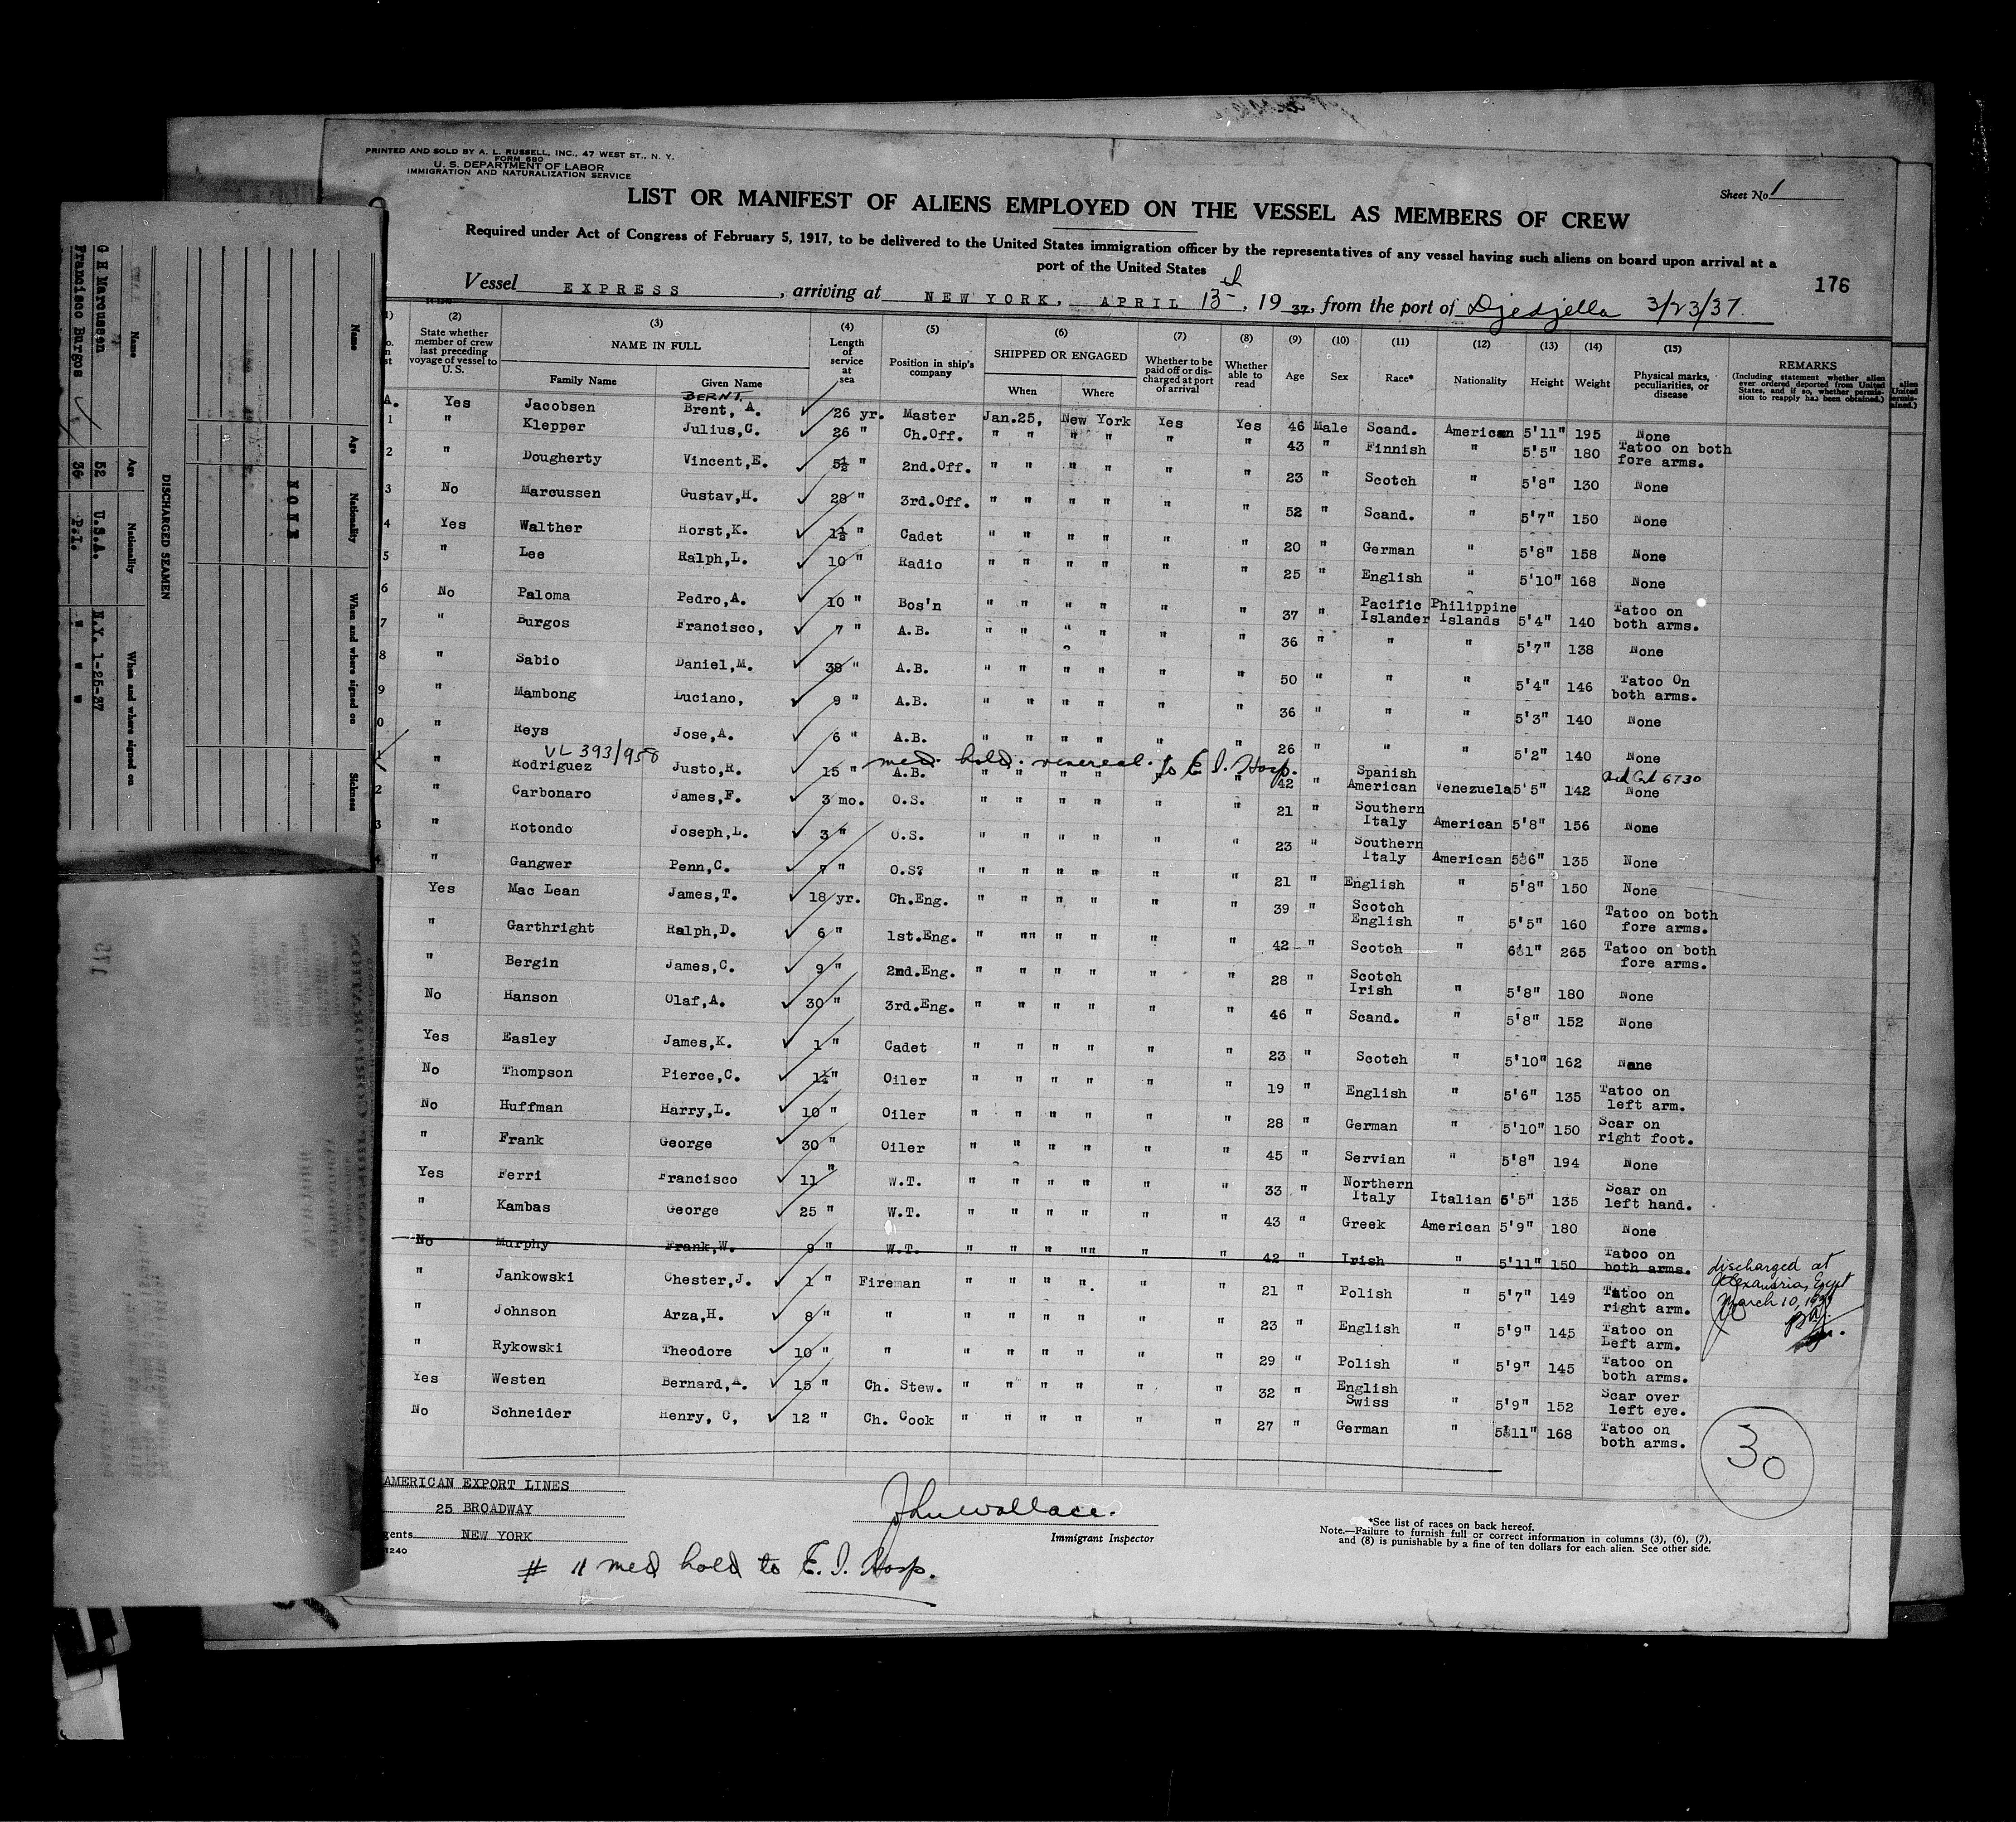 PRINTED AND SOLD BY A. L. RUSSELL, INC., 47 WEST ST., N. Y.
FORM 680
U. S. DEPARTMENT OF LABOR
IMMIGRATION AND NATURALIZATION SERVICE
Sheet No. 1
LIST OR MANIFEST OF ALIENS EMPLOYED ON THE VESSEL AS MEMBERS OF CREW
Required under Act of Congress of February 5, 1917, to be delivered to the United States immigration officer by the representatives of any vessel having such aliens on board upon arrival at a
port of the United States
176
Vessel EXPRESS, arriving at NEW YORK, APRIL 13th, 19 37, from the port of Djedjella 3/23/37.
(2) (3) (4) (5) (6) (7) (8) (9) (10) (11) (12) (13) (14) (15)
State whether member of crew last preceding voyage of vessel to U.S. NAME IN FULL Family Name Given Name Length of service at sea Position in ship's company SHIPPED OR ENGAGED When Where Whether to be paid off or discharged at port of arrival Whether able to read Age Sex Race* Nationality Height Weight Physical marks, peculiarities, or disease REMARKS
(Including statement whether alien ever ordered deported from United States, and if so, whether permission to reapply has been obtained.)
BERNT
A. Yes Jacobsen Brent, A. 26 yr. Master Jan.25, New York Yes Yes 46 Male Scand. American 5'11" 195 None
1 " Klepper Julius,C. 26 " Ch.Off. " " " " " " 43 " Finnish " 5'5" 180 Tatoo on both fore arms.
2 " Dougherty Vincent,E. 5½ " 2nd.Off. " " " " " " 23 " Scotch " 5'8" 130 None
3 No Marcussen Gustav,H. 28 " 3rd.Off. " " " " " " 52 " Scand. " 5'7" 150 None
4 Yes Walther Horst,K. 1½ " Cadet " " " " " " 20 " German " 5'8" 158 None
5 " Lee Ralph,L. 10 " Radio " " " " " " 25 " English " 5'10" 168 None
6 No Paloma Pedro,A. 10 " Bos'n " " " " " " 37 " Pacific Islander Philippine Islands 5'4" 140 Tatoo on both arms.
7 " Burgos Francisco, 7 " A.B. " " " " " " 36 " " " 5'7" 138 None
8 " Sabio Daniel,M. 38 " A.B. " " " " " " 50 " " " 5'4" 146 Tatoo On both arms.
9 " Mambong Luciano, 9 " A.B. " " " " " " 36 " " " 5'3" 140 None
0 " Reys Jose,A. 6 " A.B. " " " " " " 26 " " " 5'2" 140 None
VL 393/958 med. hold. venereal. to E. I. Hosp. 6730
1 " Rodriguez Justo,R. 15 " A.B. " " " " " " 42 " Spanish American Venezuela 5'5" 142 None
2 " Carbonaro James,F. 3 mo. O.S. " " " " " " 21 " Southern Italy American 5'8" 156 None
3 " Rotondo Joseph,L. 3 " O.S. " " " " " " 23 " Southern Italy American 5'6" 135 None
4 " Gangwer Penn,C. 7 " O.S? " " " " " " 21 " English " 5'8" 150 None
Yes Mac Lean James,T. 18 yr. Ch.Eng. " " " " " " 39 " Scotch English " 5'5" 160 Tatoo on both fore arms.
" Garthright Ralph,D. 6 " 1st.Eng. " "" " " " " 42 " Scotch " 6'1" 265 Tatoo on both fore arms.
" Bergin James,C. 9 " 2nd.Eng. " " " " " " 28 " Scotch Irish " 5'8" 180 None
No Hanson Olaf,A. 30 " 3rd.Eng. " " " " " " 46 " Scand. " 5'8" 152 None
Yes Easley James,K. 1 " Cadet " " " " " " 23 " Scotch " 5'10" 162 Nane
No Thompson Pierce,C. 1½" Oiler " " " " " " 19 " English " 5'6" 135 Tatoo on left arm.
No Huffman Harry,L. 10 " Oiler " " " " " " 28 " German " 5'10" 150 Scar on right foot.
" Frank George 30 " Oiler " " " " " " 45 " Servian " 5'8" 194 None
Yes Ferri Francisco 11 " W.T. " " " " " " 33 " Northern Italy Italian 5'5" 135 Scar on left hand.
" Kambas George 25 " W.T. " " " " " " 43 " Greek American 5'9" 180 None
No Murphy Frank,W. 9 " W.T. " " " "" " " 42 " Irish " 5'11" 150 Tatoo on both arms.
discharged at
Alexandria, Egypt
March 10, 1937
" Jankowski Chester,J. 1 " Fireman " " " " " " 21 " Polish " 5'7" 149 Tatoo on right arm.
" Johnson Arza,H. 8 " " " " " " " " 23 " English " 5'9" 145 Tatoo on Left arm.
" Rykowski Theodore 10 " " " " " " " " 29 " Polish " 5'9" 145 Tatoo on both arms.
Yes Westen Bernard,A. 15 " Ch. Stew. " " " " " " 32 " English Swiss " 5'9" 152 Scar over left eye.
No Schneider Henry, C, 12 " Ch. Cook " " " " " " 27 " German " 5'11" 168 Tatoo on both arms.
30
AMERICAN EXPORT LINES
25 BROADWAY
gents NEW YORK
1240
John Wallace.
Immigrant Inspector
*See list of races on back hereof.
Note.—Failure to furnish full or correct information in columns (3), (6), (7),
and (8) is punishable by a fine of ten dollars for each alien. See other side.
# 11 med hold to E. I. Hosp.
DISCHARGED SEAMEN
Name Age Nationality When and where signed on
G H Marcussen 52 U.S.A. N.Y. 1-25-37
Francisco Burgos 36 P.I. " " "
Name Age Nationality When and where signed on Sickness
NONE